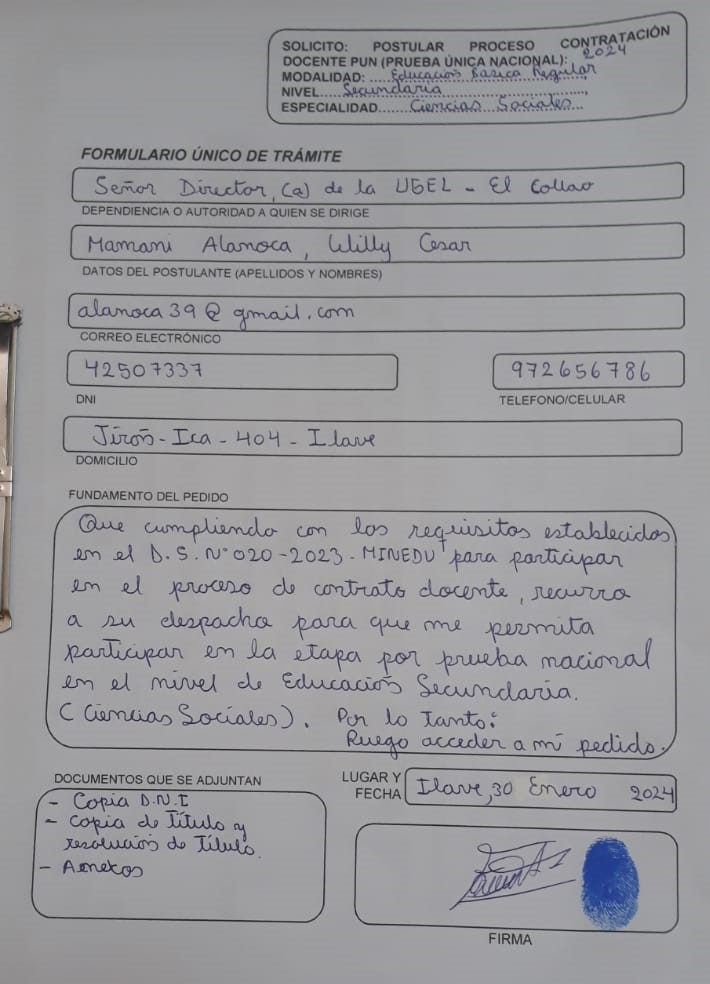 SOLICITO: POSTULAR PROCESO CONTRATACIÓN 2024
DOCENTE PUN (PRUEBA ÚNICA NACIONAL):
MODALIDAD: Educación Básica Regular
NIVEL Secundaria
ESPECIALIDAD Ciencias Sociales
FORMULARIO ÚNICO DE TRÁMITE
Señor Director, (a) de la UGEL - El Collao
DEPENDIENCIA O AUTORIDAD A QUIEN SE DIRIGE
Mamani Alanoca, Willy Cesar
DATOS DEL POSTULANTE (APELLIDOS Y NOMBRES)
alanoca39@gmail.com
CORREO ELECTRÓNICO
42507337
972656786
DNI
TELEFONO/CELULAR
Jirón - Ica - 404 - Ilave
DOMICILIO
FUNDAMENTO DEL PEDIDO
Que cumpliendo con los requisitos establecidos
en el D.S. N° 020-2023-MINEDU para participar
en el proceso de contrato docente, recurro
a su despacho para que me permita
participar en la etapa por prueba nacional
en el nivel de Educación Secundaria.
(Ciencias Sociales). Por lo Tanto:
Ruego acceder a mi pedido.
DOCUMENTOS QUE SE ADJUNTAN
- Copia D.N.I
- Copia de Título y
resolución de Título.
- Anexos
LUGAR Y
FECHA
Ilave, 30 Enero 2024
FIRMA